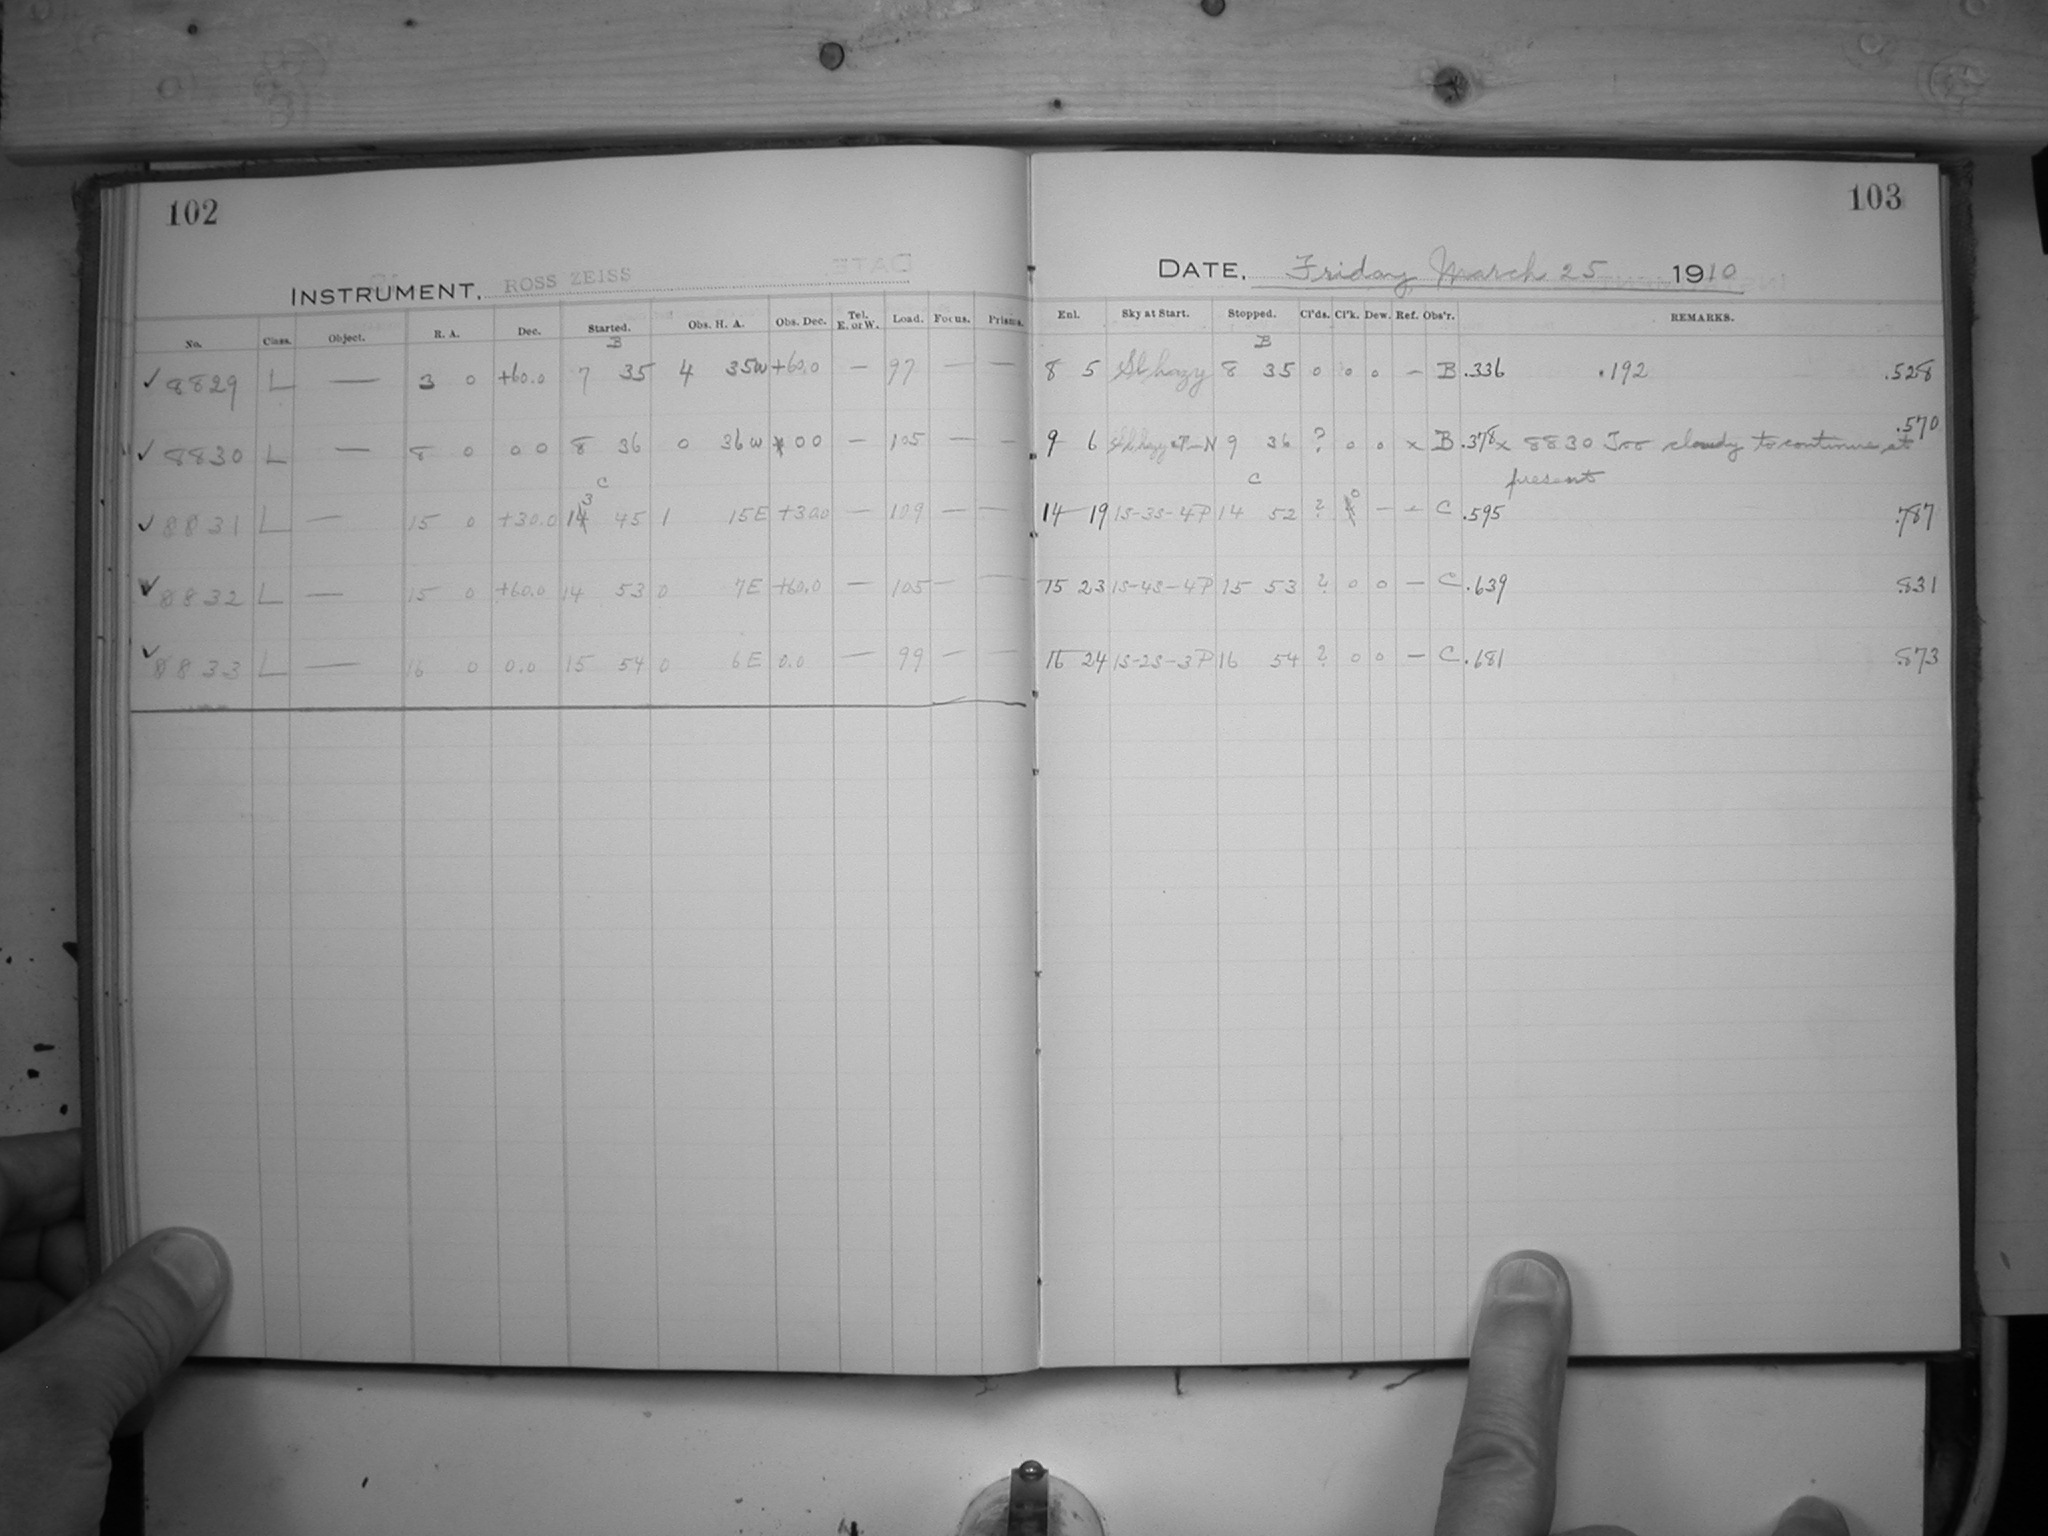 102
INSTRUMENT, ROSS ZEISS
No. Class. Object. R. A. Dec. Started. Obs. H. A. Obs. Dec. Tel. E. or W. Load. Focus. Prisms.
B
✓ 8829 L — 3 0 +60.0 7 35 4 35W +60.0 — 97 — —
✓ 8830 L — 8 0 0 0 8 36 0 36W 0 0 — 105 — —
3 C
✓ 8831 L — 15 0 +30.0 14 45 1 15E +30.0 — 109 — —
✓ 8832 L — 15 0 +60.0 14 53 0 7E +60.0 — 105 — —
✓ 8833 L — 16 0 0.0 15 54 0 6E 0.0 — 99 — —
103
DATE, Friday, March 25 1910
Enl. Sky at Start. Stopped. Cl'ds. Cl'k. Dew. Ref. Obs'r. REMARKS.
B
8 5 Sl. hazy 8 35 0 0 0 — B .336 .192 .528
.570
9 6 Sl. hazy N 9 36 ? 0 0 x B .378 x 8830 Too cloudy to continue at
present
C 0
14 19 1S-3S-4P 14 52 ? — — C .595 .787
15 23 1S-4S-4P 15 53 ? 0 0 — C .639 .831
16 24 1S-2S-3P 16 54 ? 0 0 — C .681 .873